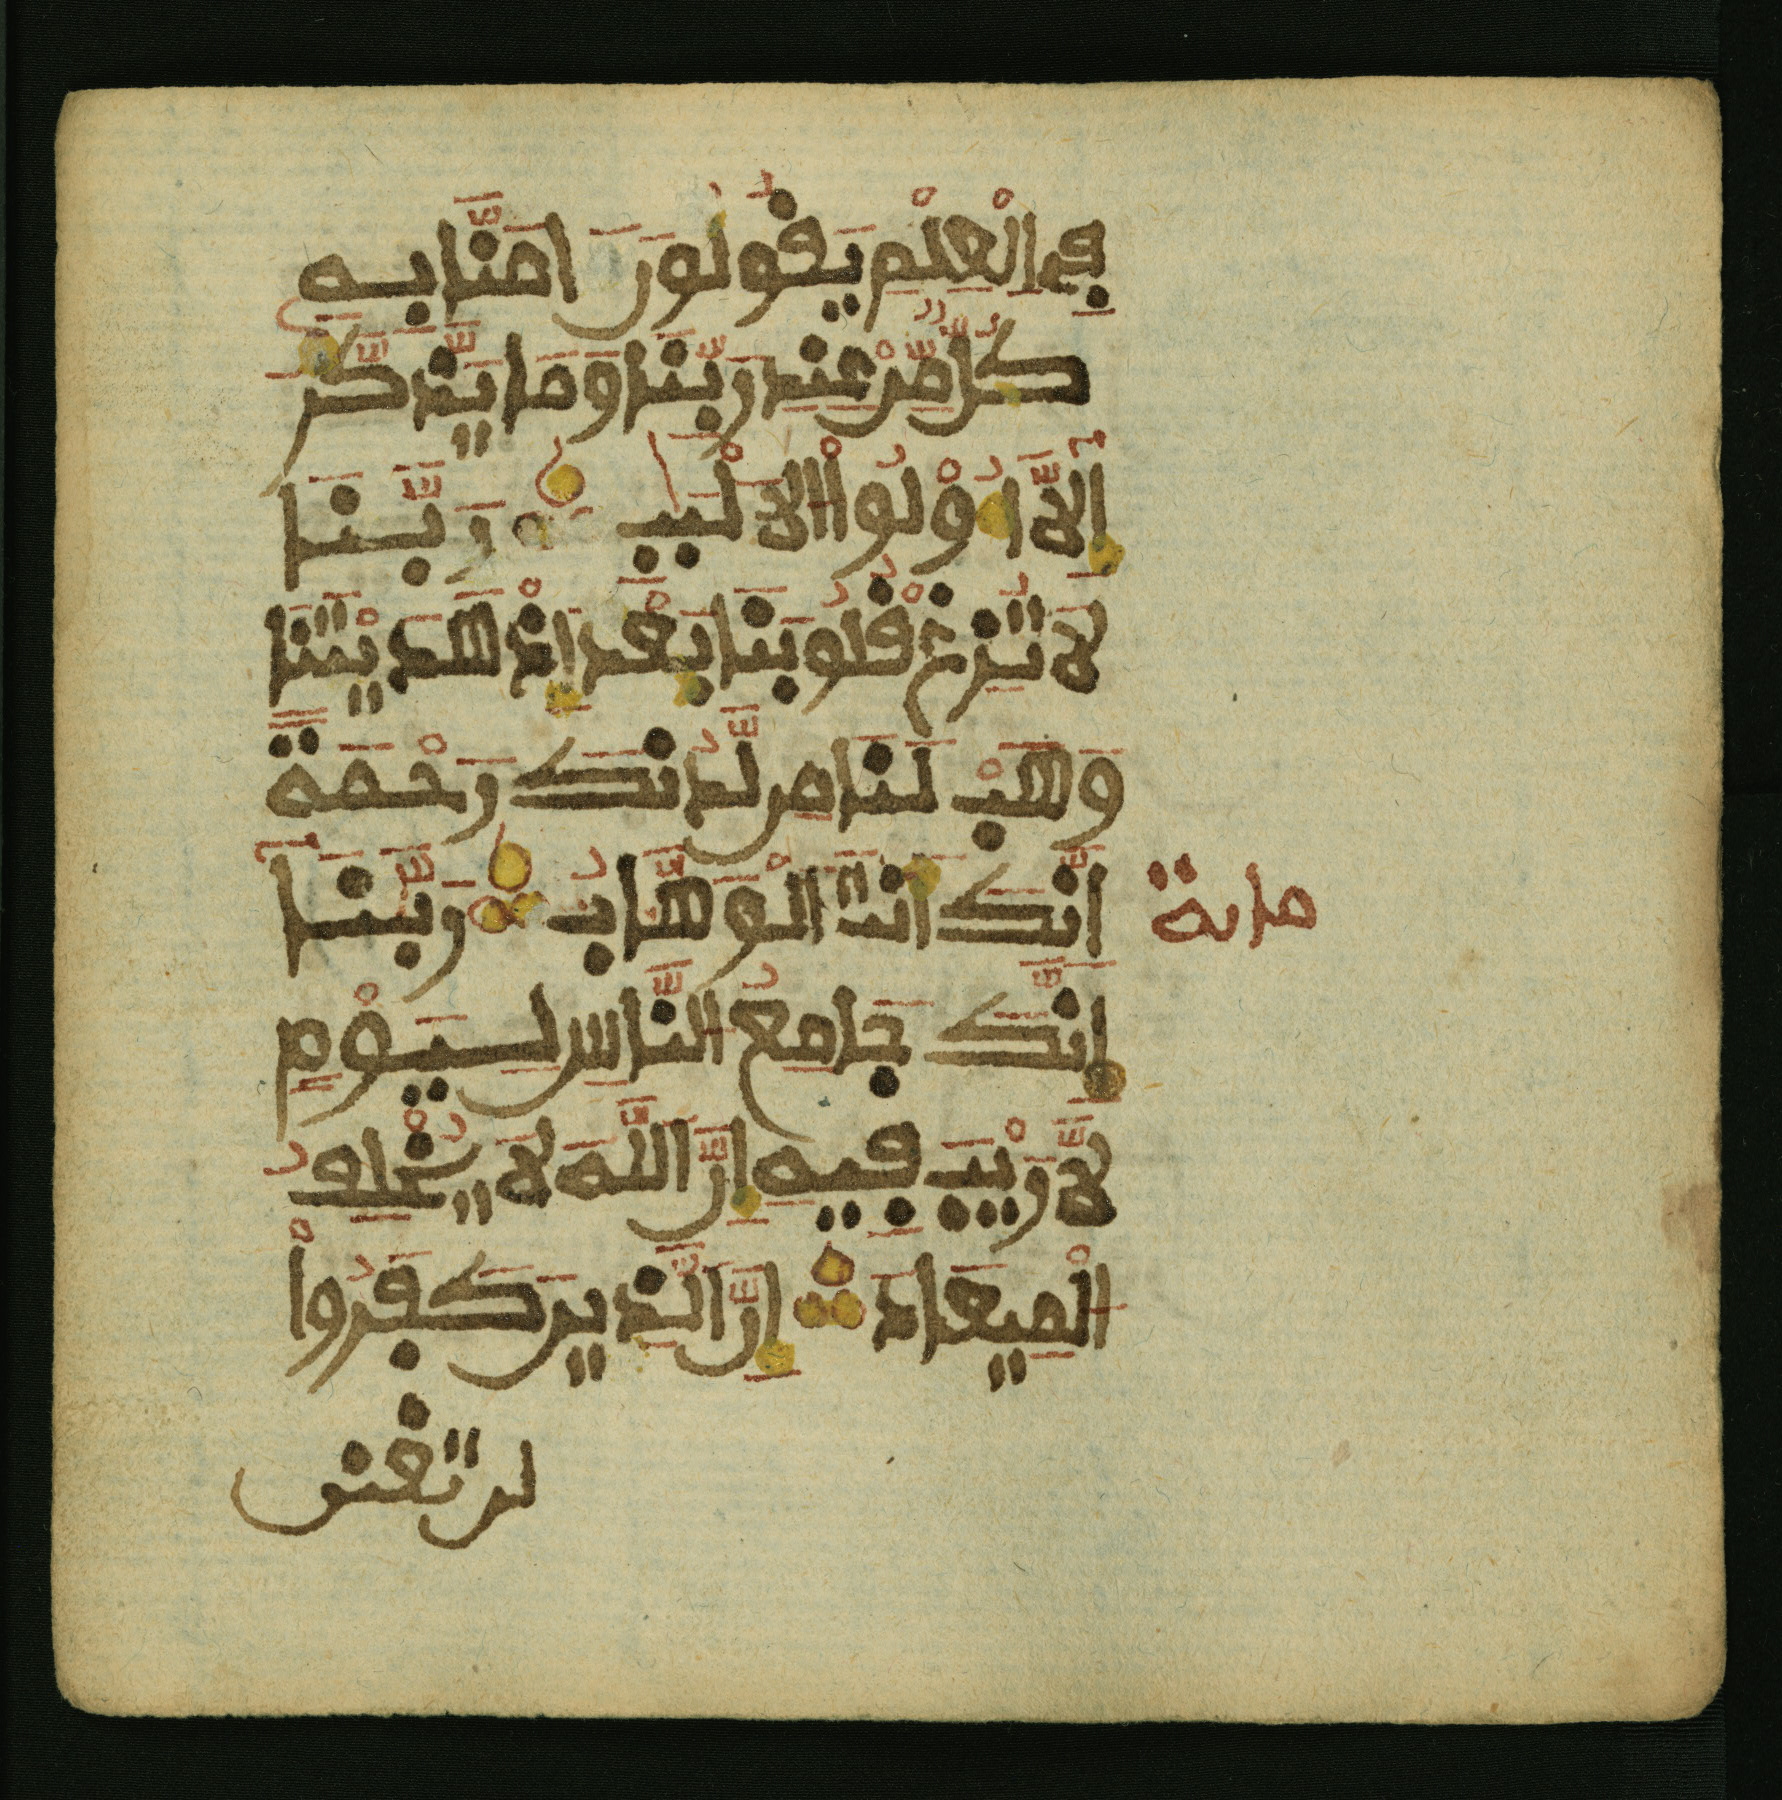 فِے اِ۬لْعِلْمِ يَقُولُونَ ءَامَنَّا بِهِۦ
كُلّٞ مِّنْ عِندِ رَبِّنَا وَمَا يَذَّكَّرُ
إِلَّآ أُوْلُواْ اُ۬لَالْبَٰبِ رَبَّنَا
لَا تُزِغْ قُلُوبَنَا بَعْدَ إِذْ هَدَيْتَنَا
وَهَبْ لَنَا مِن لَّدُنكَ رَحْمَةً
إِنَّكَ أَنتَ اَ۬لْوَهَّابُ رَبَّنَآ
إِنَّكَ جَامِعُ اُ۬لنَّاسِ لِيَوْمٖ
لَّا رَيْبَ فِيهِ إِنَّ اَ۬للَّهَ لَا يُخْلِفُ
اُ۬لْمِيعَادَ إِنَّ اَ۬لذِينَ كَفَرُواْ
لن تغنى